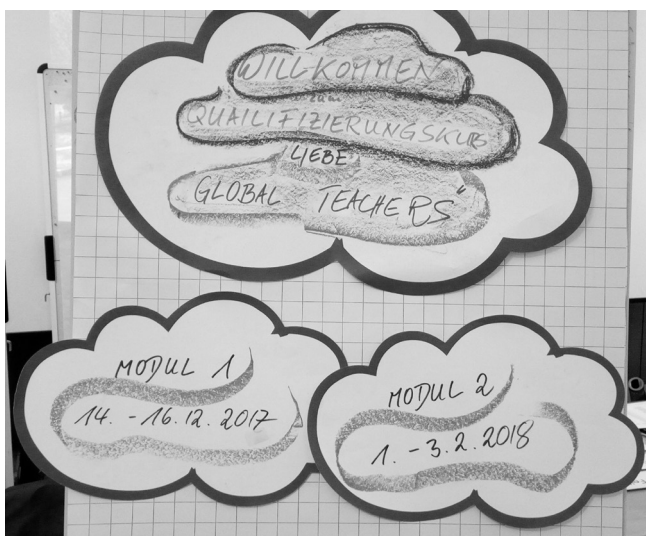 WILLKOMMEN
zum
QUAILIFIZIERUNGSKURS
LIEBE
GLOBAL TEACHERS"
MODUL 1
14. - 16.12.2017
MODUL 2
1. - 3.2.2018